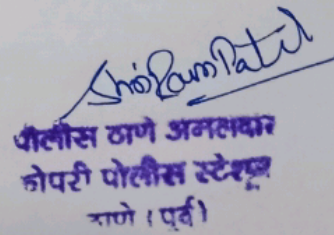 Shri Ram Patil
पोलीस ठाणे अमलदार
कोपरी पोलीस स्टेशन
ठाणे (पुर्व)